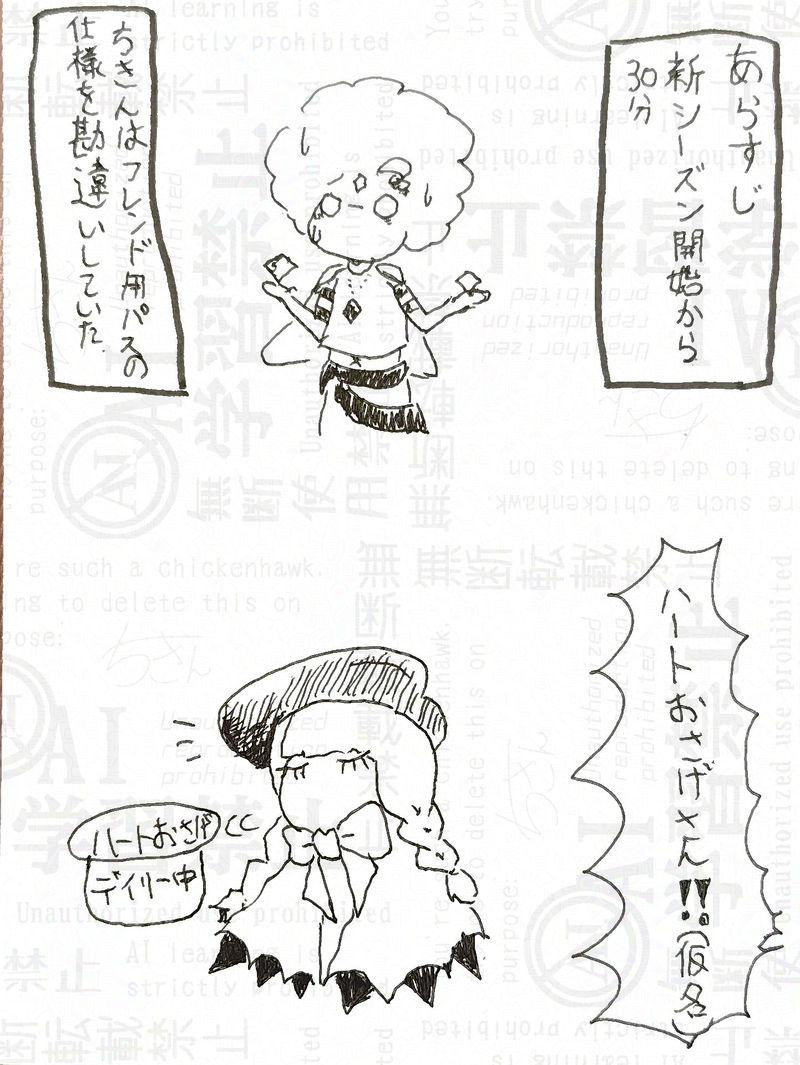 あらすじ
新シーズン開始から
30分
ちきんはフレンド用パスの
仕様を勘違いしていた
ハートおさげさん!!。(仮名)
ハートおさげ
デイリー中
AI learning is
strictly prohibited
Unauthorized use prohibited
Unauthorized
reproduction
prohibited
無断転載禁止
無断使用禁止
AI学習禁止
re such a chickenhawk.
ing to delete this on
pose:
purpose:
ちきん